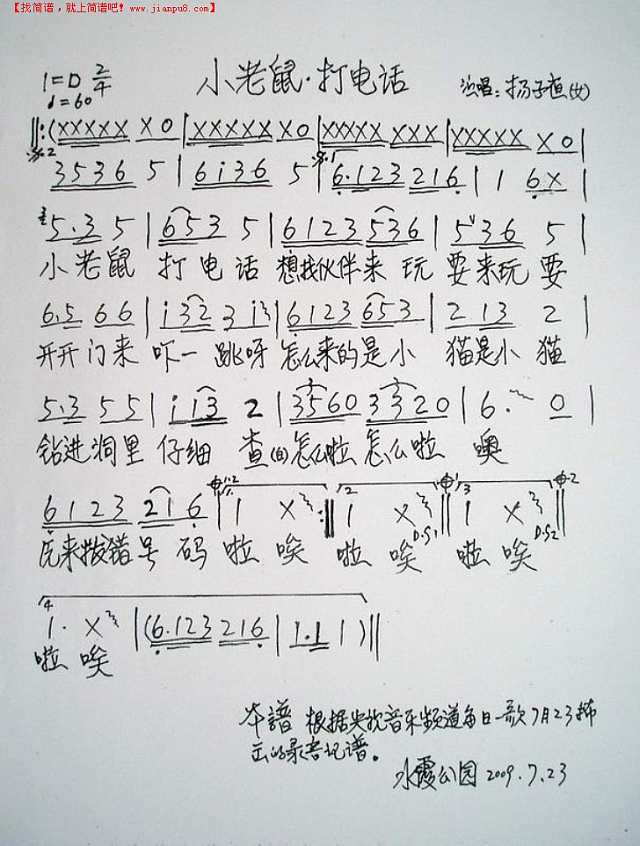 【找简谱，就上简谱吧! www.jianpu8.com】
1=D 2/4
♩=60
小老鼠·打电话
演唱：杨子宜(女)
‖:(XXXXX X0|XXXXX X0|XXXXX XXX|XXXXX X0|
3536 5|6i36 5|6.123 216|1 6X|
5.3 5|653 5|6123 536|536 5|
小老鼠 打电话 想找伙伴来玩 要来玩要
6.5 66|i32 3 i|6123 653|2 13 2|
开开门来 吓一跳呀 怎么来的是小 猫是小猫
5.3 55|i i3 2|3560 3320|6. 0|
钻进洞里 仔细查(白)怎么啦 怎么啦 噢
6123 216|1 X:‖1 X‖1 X‖
来拨错号码啦 唉 啦 唉 啦 唉
D.S1 D.S2
1. X|(6.123 216|1.1 1)‖
啦 唉
本譜 根据央视音乐频道每日一歌7月23播
出的录音记谱。
水霞公园 2009.7.23